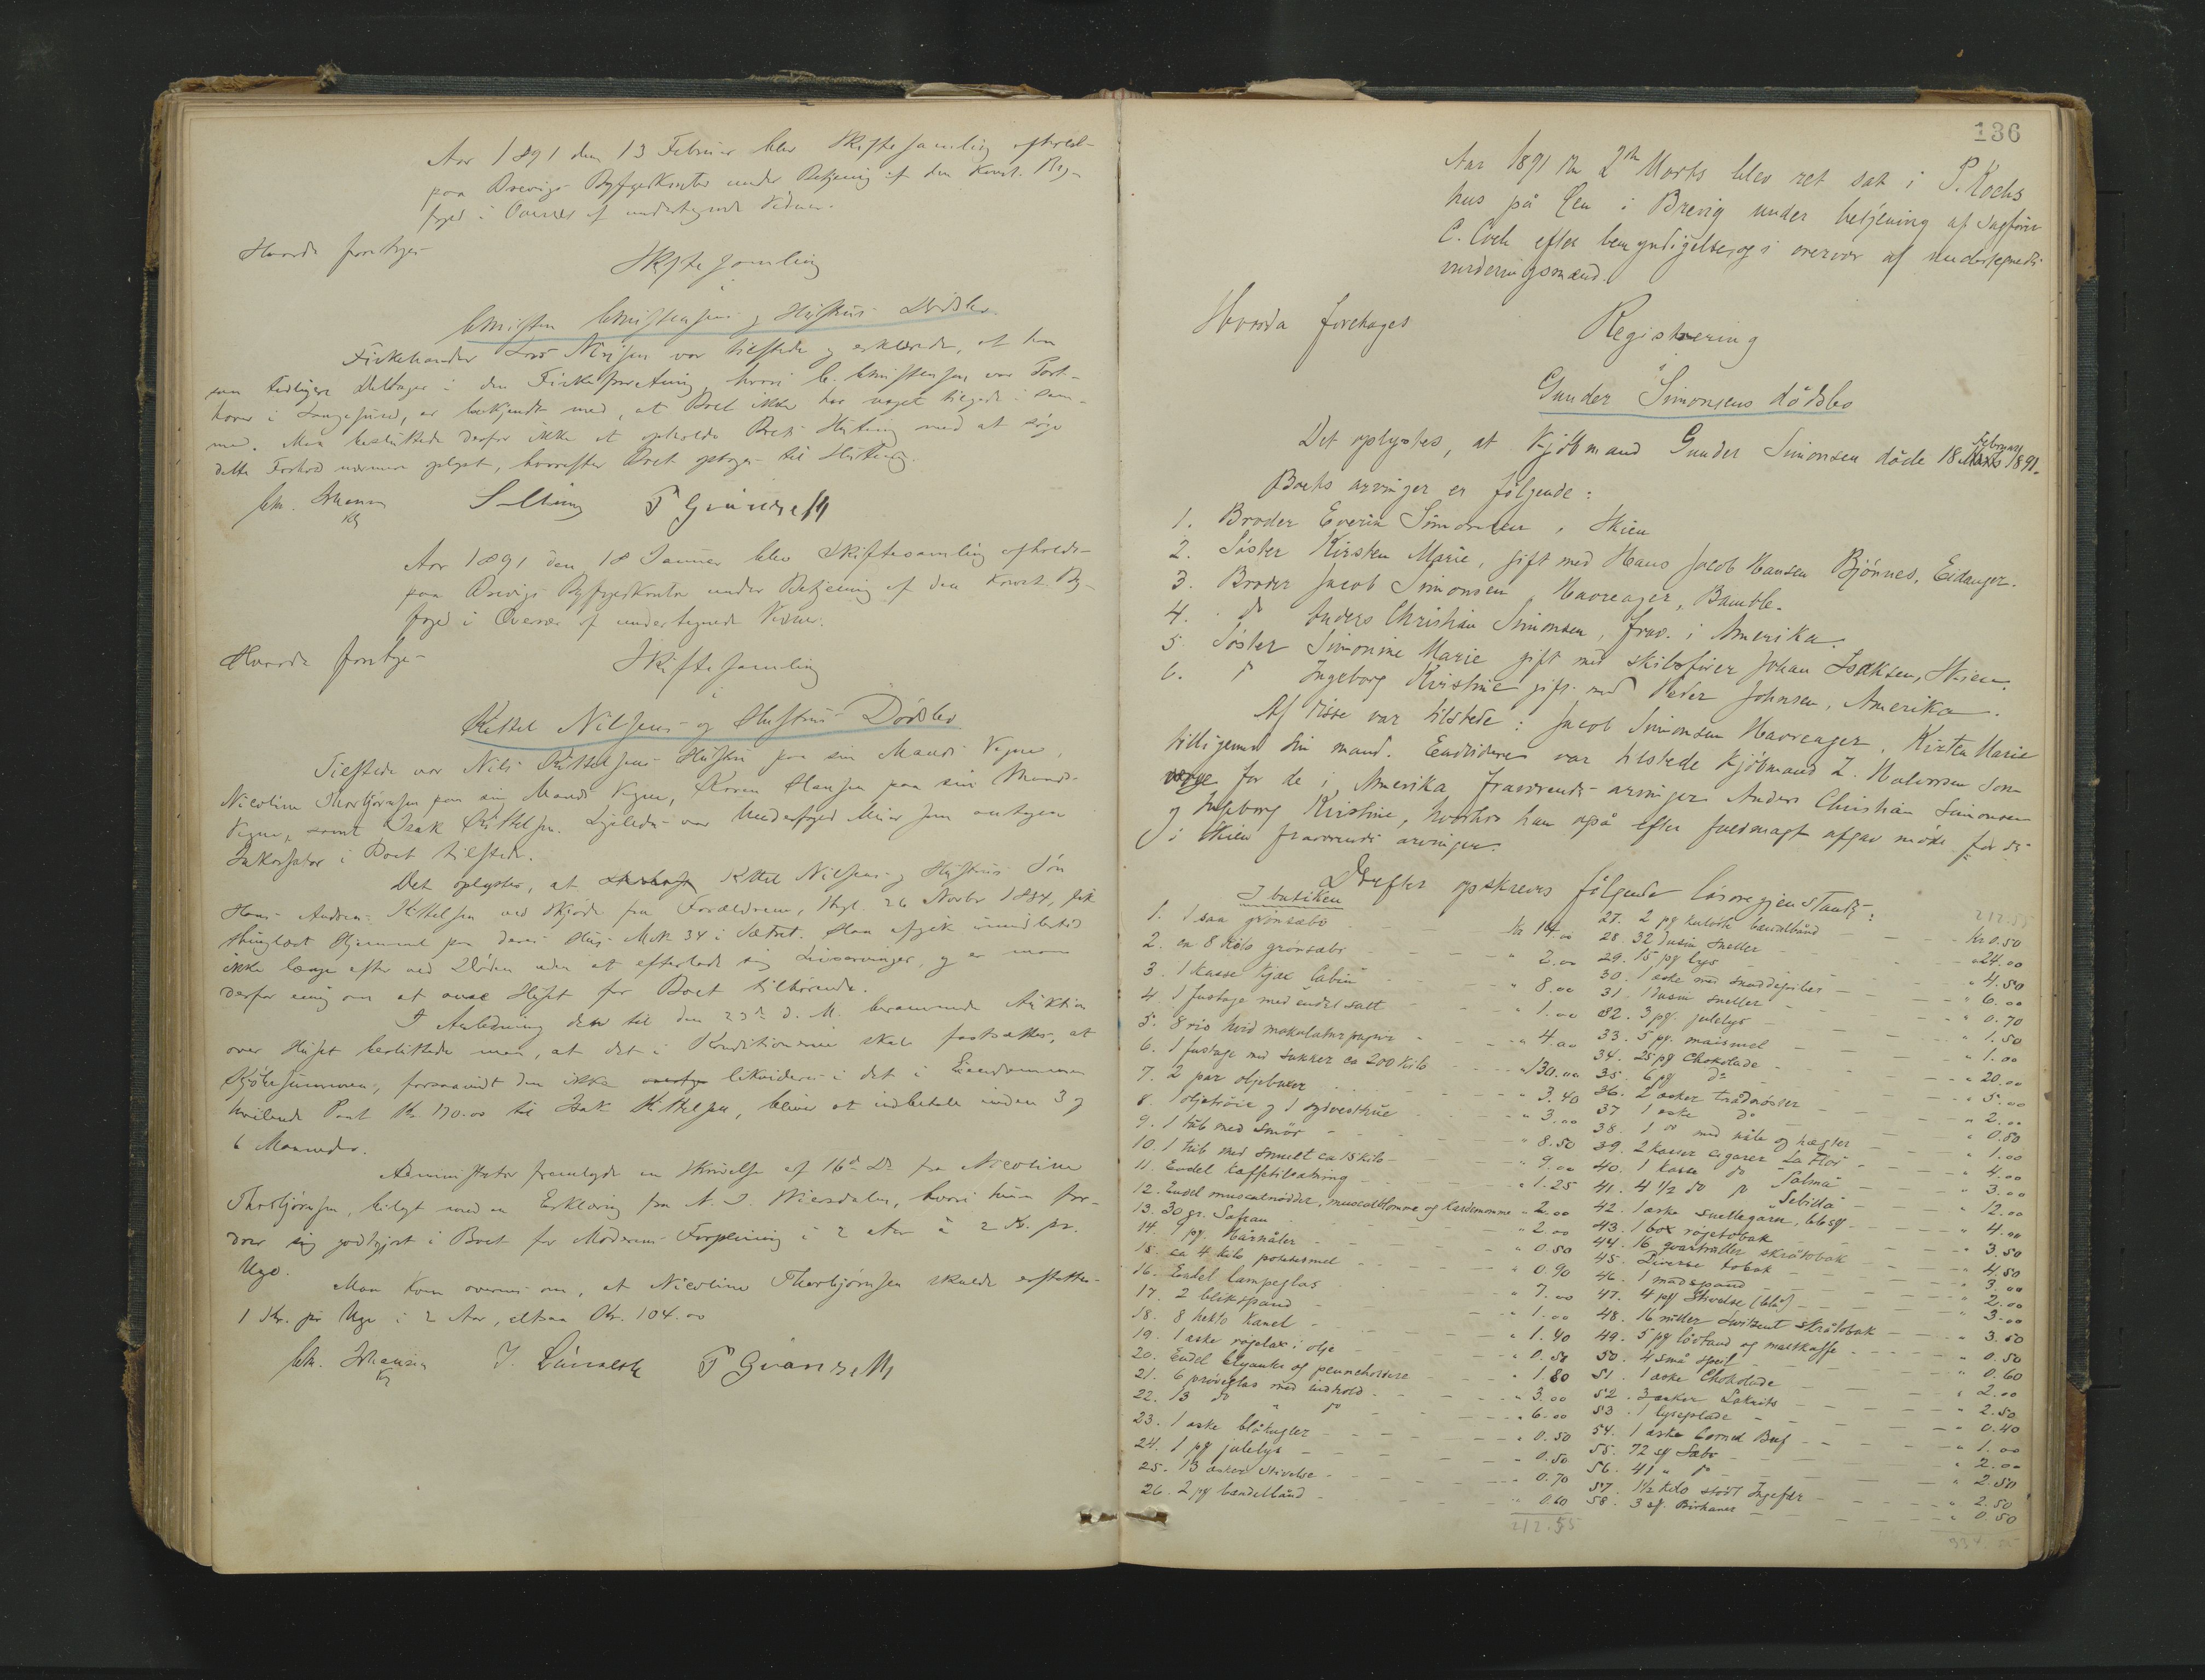 Aar 1891 den 13 Februar blev Skiftesamling afholdt
paa Brevigs Byfogedkontor under Betjening af den Konst. By-
foged i Overvær af undertegnede Vidner.
Hvorda foretoges
Skiftesamling
i
Christen Christensens og Hustrus Dødsbo
Fiskehandler Lars Nilsen var tilstede og erklærede, at han
som tidligere Deltager i den Fiskeforretning, hvori C. Christensen var Part-
haver i Langesund, er bekjendt med, at Boet ikke har noget tilgode i Sam-
me. Man besluttede derfor ikke at opholde Boets Slutning med at søge
dette Forhold nærmere oplyst, hvorefter Boet optages til Slutning.
Chr. Johansen
Kst
Aar 1891 den 18 Januar blev Skiftesamling afholdt
paa Brevigs Byfogedkontor under Betjening af den Konst. By-
foged i Overvær af undertegnede Vidner.
Hvorda foretoges
Skiftesamling
i
Kittel Nilsens og Hustrus Dødsbo
Tilstede var Nils Kittelsens Hustru paa sin Mands Vegne,
Nicoline Thorbjørnsen paa sin Mands Vegne, Karen Hansen paa sin Mands
Vegne, samt Isak Kittelsen. Ligeledes var Underfoged som antagen
Inkassator i Boet tilstede.
Det oplystes, at Kittel Nilsens og Hustrus Søn
Hans Andreas Kittelsen ved Skjøde fra Forældrene, thgl. 26 Novbr 1884, fik
thinglæst Hjemmel paa deres Hus M.N. 34 i Sætret. Han afgik imidlertid
ikke længe efter ved Døden uden at efterlade sig Livsarvinger, og er man
derfor enig om at anse Huset for Boet tilhørende.
I Anledning den til den 23de d. M. berammede Auktion
over Huset besluttede man, at det i Konditionerne skal fastsættes, at
Kjøbesummen, forsaavidt den ikke likvideres i det i Eiendommen
hvilende Pant Kr 170.00 til Isak Kittelsen, bliver at indbetale inden 3 og
6 Maaneder.
Administrator fremlagde en Skrivelse af 16de Ds. fra Nicoline
Thorbjørnsen, bilagt med en Erklæring fra A. I. Wiersdalen, hvori hun for-
drer sig godtgjort i Boet for Moderens Forpleining i 2 Aar à 2 Kr. pr.
Uge.
Man kom overens om, at Nicoline Thorbjørnsen skulde erstattes
1 Kr. pr Uge i 2 Aar, altsaa Kr. 104.00
Chr. Johansen
Kst
136
Aar 1891 den 2den Marts blev ret sat i P. Kochs
hus på Øen i Brevig under betjening af Sagfører
C. Coch efter bemyndigelse, og i overvær af undertegnede
vurderingsmænd.
Hvorda foretoges
Registrering
i
Gunder Simonsens dødsbo
Februar
Det oplystes, at kjöbmand Gunder Simonsen döde 18 Marts 1891.
Boets arvinger er fölgende:
1. Broder Everin Simonsen, Skien
2. Söster Kirsten Marie, gift med Hans Jacob Hansen Bjönnes, Eidanger.
3. Broder Jacob Simonsen, Havreager, Bamble.
4. do Anders Christian Simonsen, frav. i Amerika.
5. Söster Simonine Marie gift med skibsförer Johan Isaksen, Skien.
6. do Ingeborg Kirstine gift med Peder Johnsen, Amerika.
Af disse var tilstede: Jacob Simonsen Havreager, Kirsten Marie
tilligemed sin mand. Endvidere var tilstede kjöbmand L. Halvorsen som
værge for de i Amerika fraværende arvinger Anders Christian Simonsen
og Ingeborg Kirstine, hvorhos han også efter fuldmagt afgav möde for de
i Skien fraværende arvinger.
Derefter opskreves fölgende lösöregjenstande:
I butiken
212.55
1. 1 saa grönsæbe Kr 14.00
2. ca 8 kilo grönsæbe " 2.00
3. 1 kasse kjæx Cabin " 8.00
4. 1 fustage med endel salt " 1.00
5. 8 ris hvid makulaturpapir " 4.00
6. 1 fustage med sukker ca 200 kilo " 130.00
7. 2 par oljebuxer " 3.40
8. 1 oljetröie og 1 sydvesthue " 3.00
9. 1 täb med smör " 8.50
10. 1 täb med smult ca 15 kilo " 9.00
11. Endel kaffetilsætning " 1.25
12. Endel muscatnödder, muscatblomme og kardemomme " 2.00
13. 30 gr. Safran " 2.00
14. 1 pg. hårnåler " 0.50
15. ca 4 kilo potetesmel " 0.90
16. Endel lampeglas " 7.00
17. 2 blikspand " 1.00
18. 8 hekto kanel " 1.40
19. 1 æske røgelax i olje " 0.50
20. Endel blyanter og penneholdere " 1.80
21. 6 pröveglas med indhold " 3.00
22. 13 do " do " 6.00
23. 1 æske blåkugler " 0.50
24. 1 pg julelys " 0.50
25. 13 æsker stivelse " 0.70
26. 2 pg bændelbånd " 0.60
212.55
27. 2 pg kulörte bændelbånd Kr 0.50
28. 32 dusin sneller " 24.00
29. 15 pg lys " 4.50
30. 1 æske med snaddepiber " 6.00
31. 1 dusin sneller " 0.70
32. 3 pg. julelys " 1.50
33. 5 pg. maismel " 1.00
34. 25 pg Chokolade " 20.00
35. 6 pg do " 5.00
36. 2 æsker trådnösser " 2.00
37. 1 æske do " 0.50
38. 1 do med nåle og hægter " 1.00
39. 2 kasser cigarer La Flor " 4.00
40. 1 kasse do Salma " 3.00
41. 4 1/2 do do Sebilla " 12.00
42. 1 æske snellegarn, 66 st " 4.00
43. 1 box røgetobak " 3.50
44. 16 qvartruller skråtobak " 4.50
45. Diverse tobak " 3.00
46. 1 madspand " 2.00
47. 4 pg Stivelse (blå) " 3.00
48. 16 ruller Switzent skråtobak " 3.50
49. 5 pg lövtand og maltkaffe " 0.50
50. 4 små speil " 0.60
51. 1 æske Chokolade " 2.00
52. 3 æsker Lakrits " 2.50
53. 1 lyseplade " 0.40
54. 1 æske Corned Beef " 1.00
55. 72 st Sæbe " 2.00
56. 41 " do " 2.50
57. 1 1/2 kilo stödt Ingefær " 2.50
58. 3 st. Birkaner " 0.50